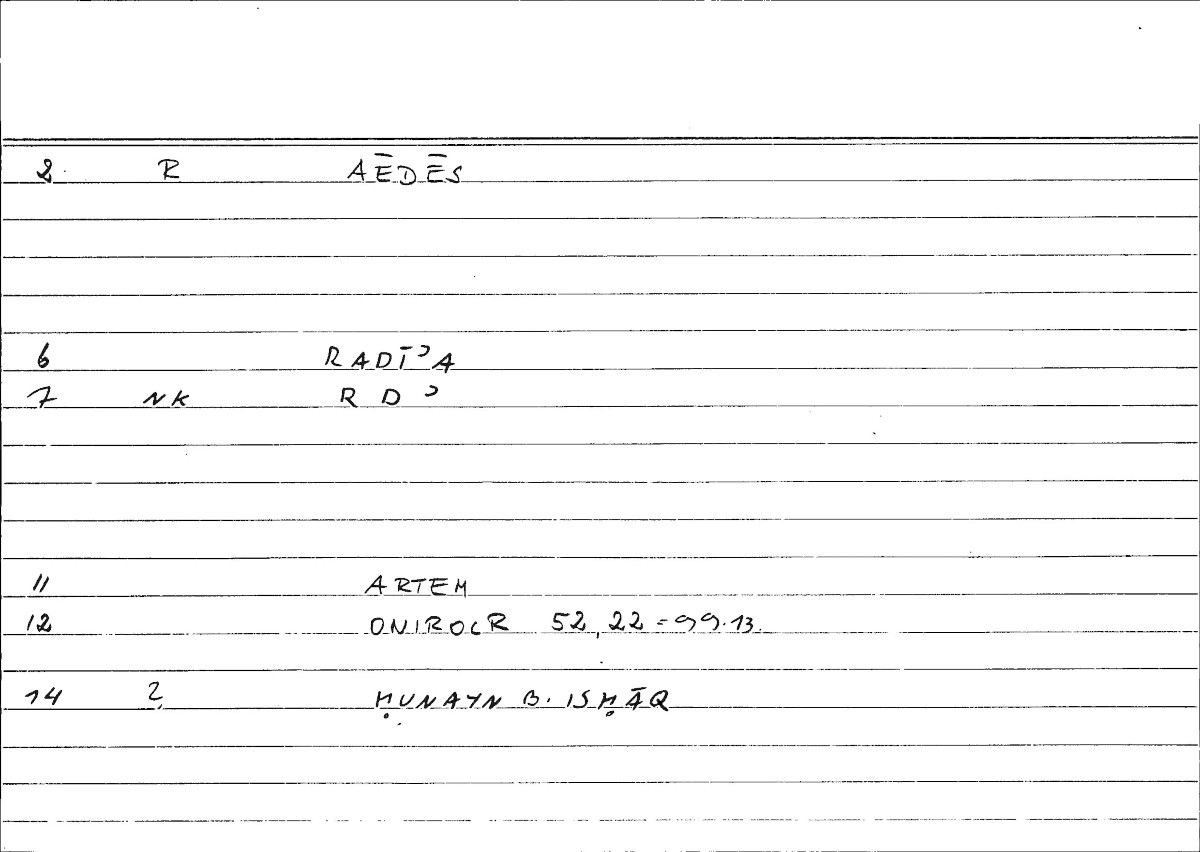 2. R AĒDĒS
6 RADĪʾA
7 NK R D ʾ
11 ARTEM
12 ONIROCR 52,22 = 99.13.
14 2 ḤUNAYN B. ISḤĀQ